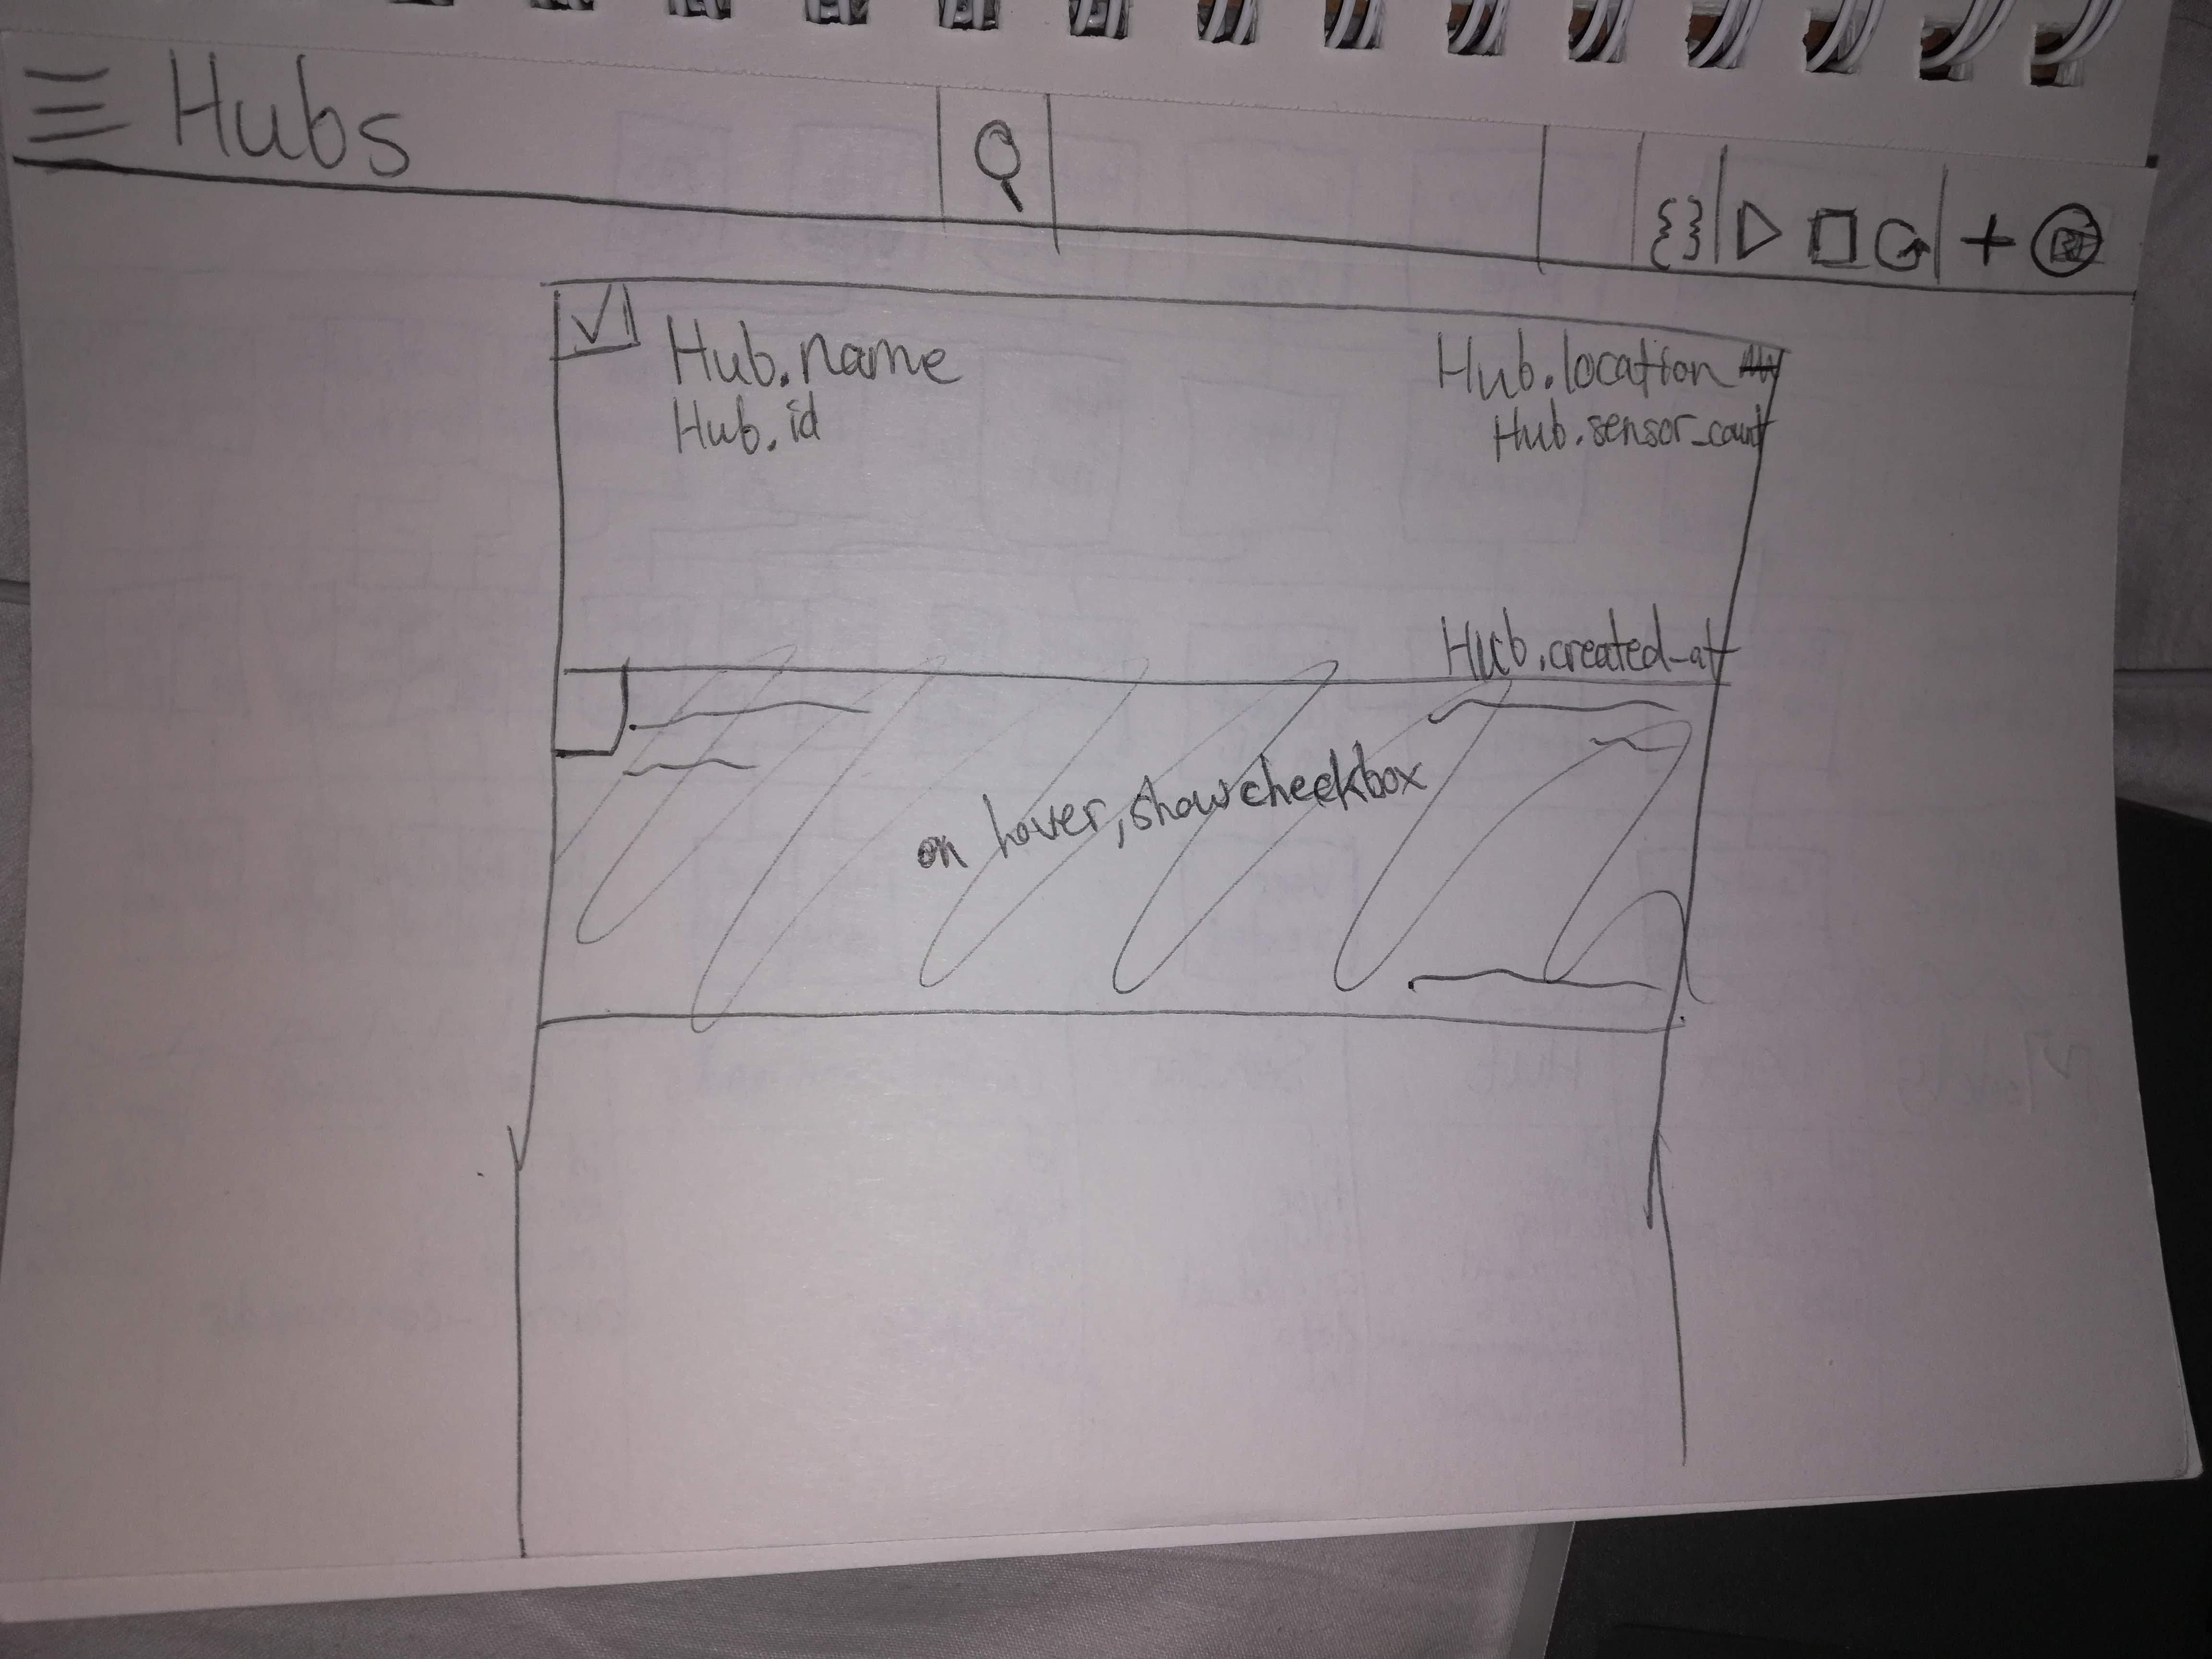 Hubs
{} +
Hub.name
Hub.location
Hub.id
Hub.sensor_count
Hub.created_at
on hover, show checkbox